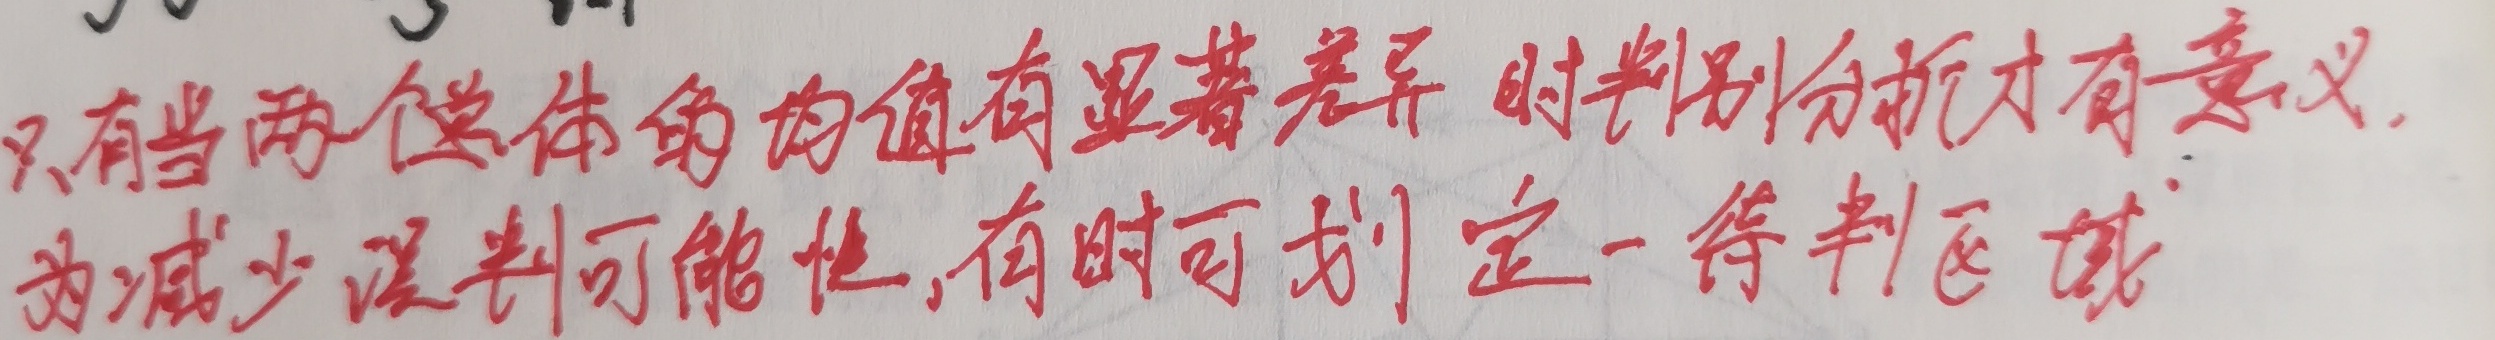 只有当两个总体的均值有显著差异时判别分析才有意义.
为减少误判可能性,有时可划定一待判区域